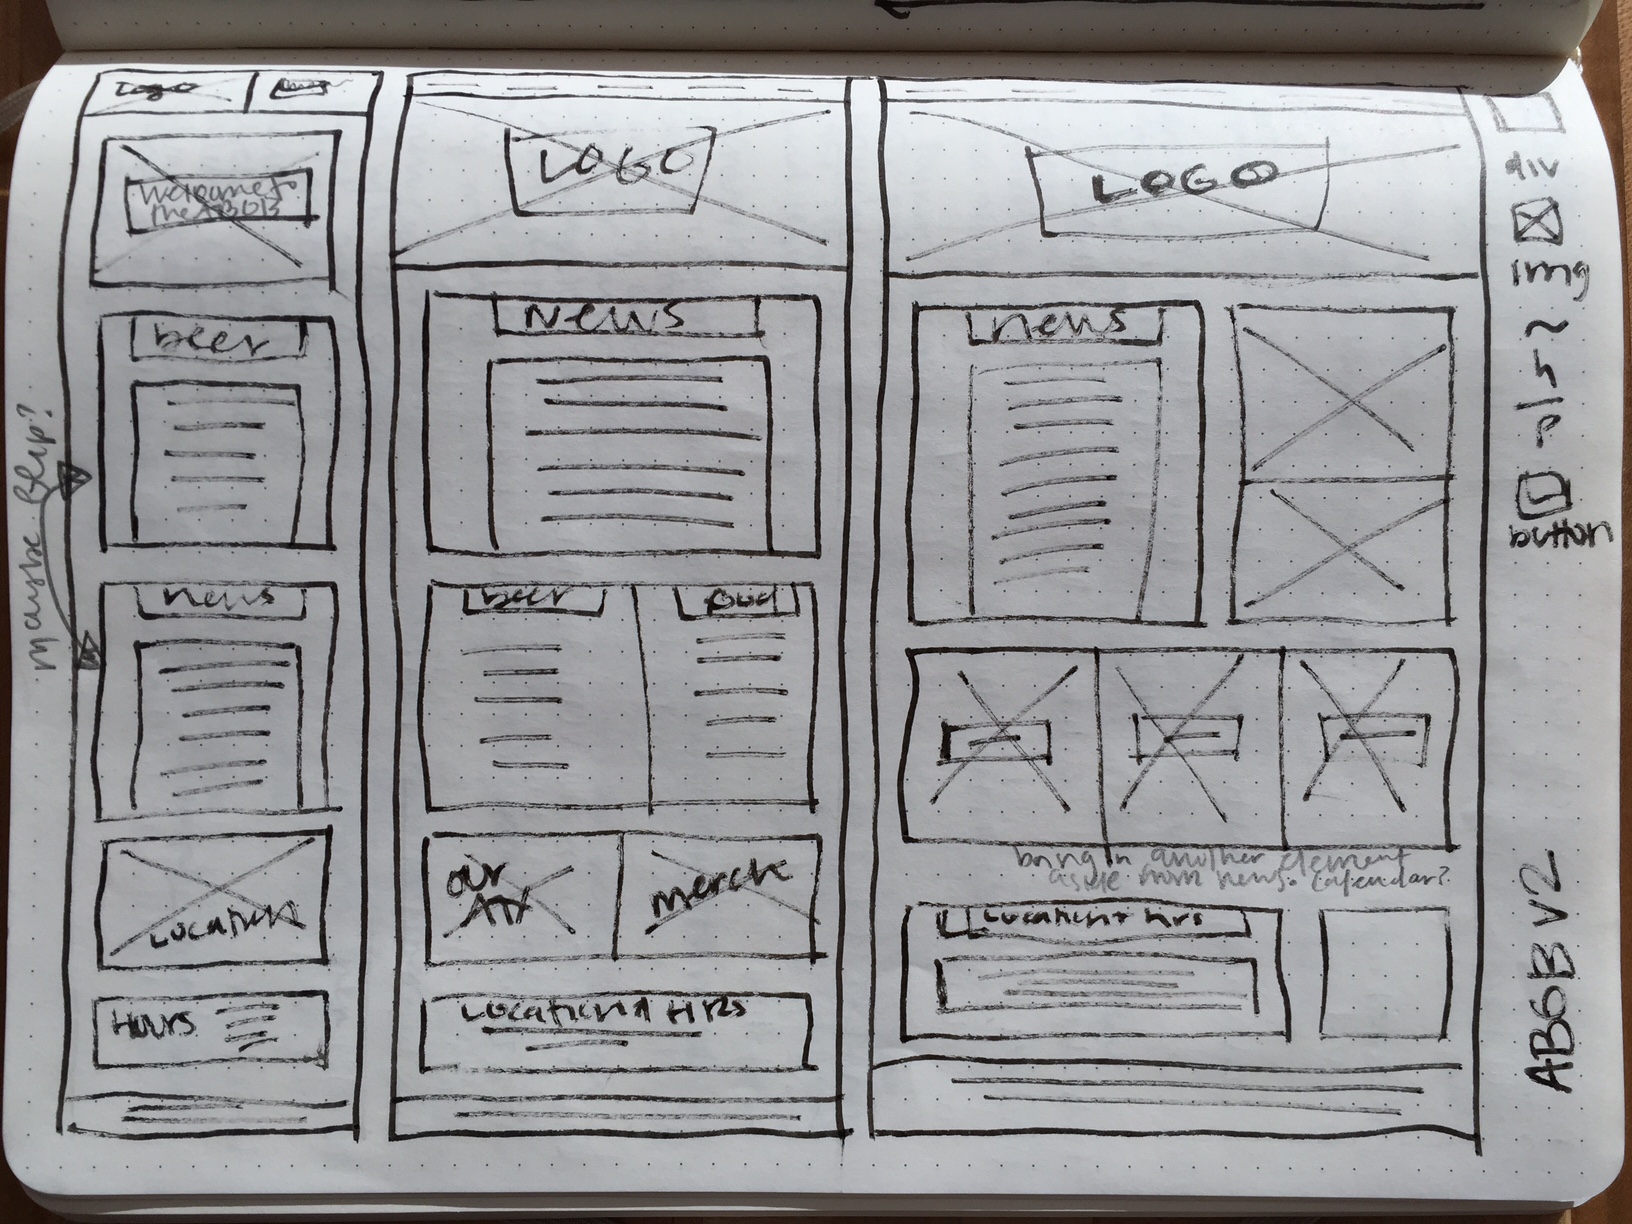 maybe flip?
Logo
beer
news
Location
Hours
LOGO
News
beer
food
our
ATX
merch
Location & HRS
LOGO
news
bring in another element
aside from news. Calendar?
Location + hrs
div
img
button
ABGB V2